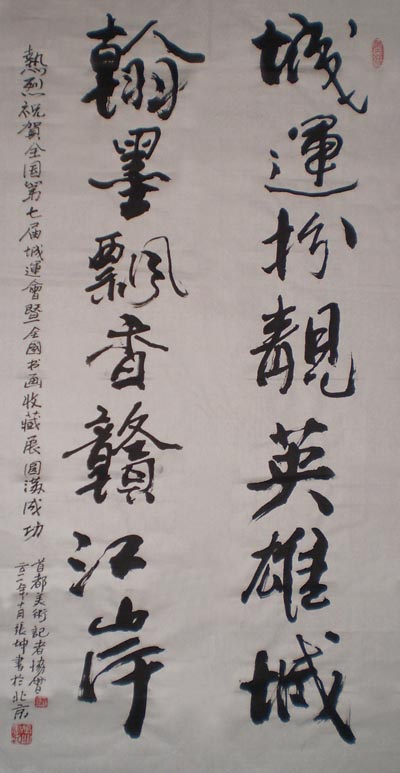 城運扮靚英雄城
翰墨飄香贛江岸
熱烈祝賀全国第七届城運會暨全國书画收藏展圆满成功
首都美術記者協會
二〇一一年十月張坤書於北京